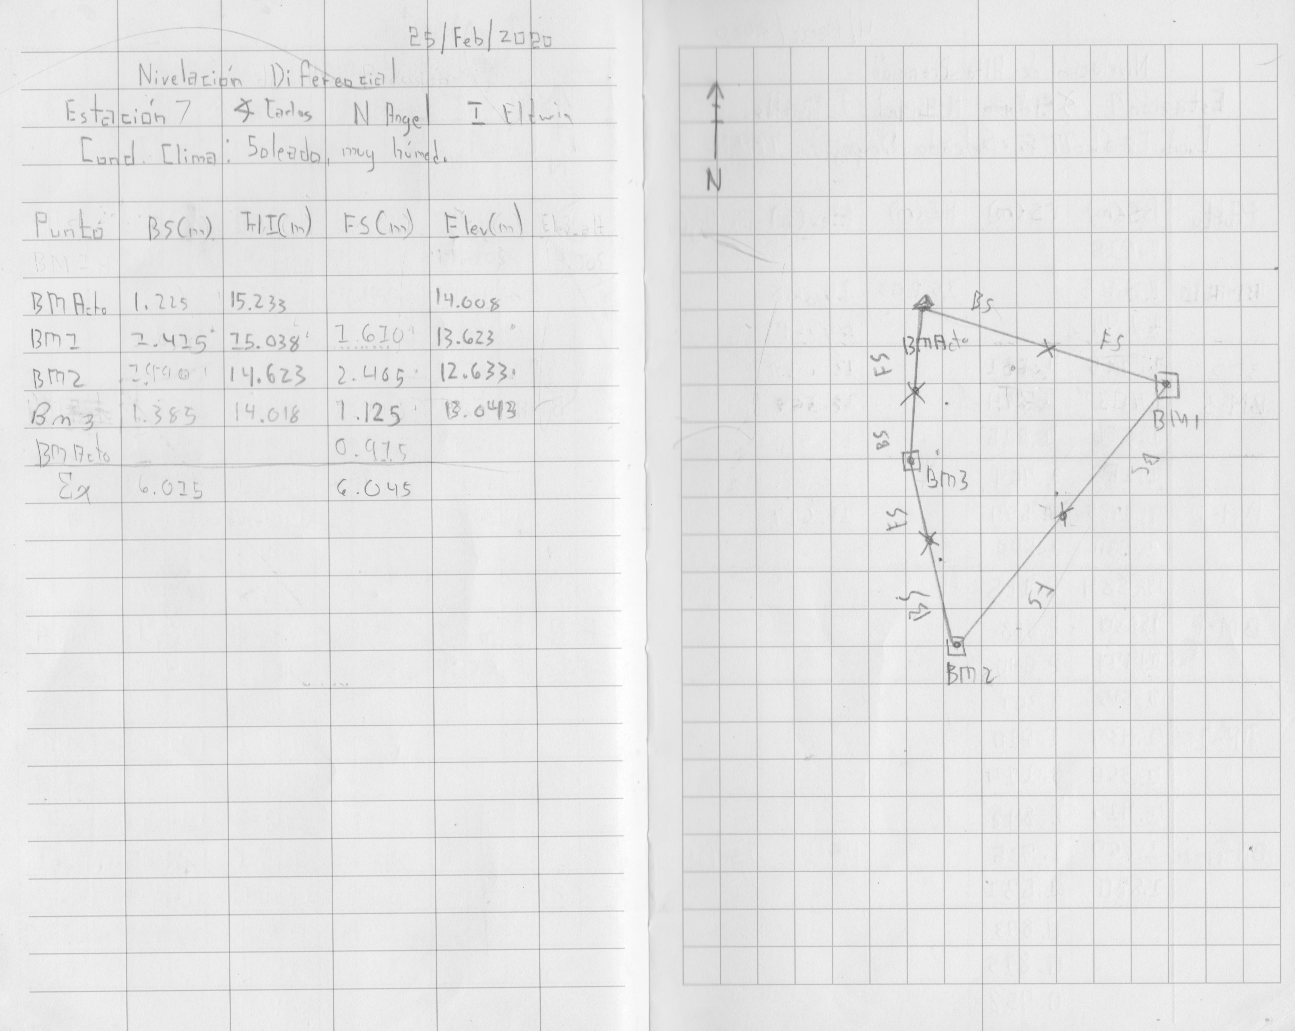 25/Feb/2020
Nivelación Diferencial
Estación 7 ⊼ Carlos N Angel I Eltwin
Cond. Clima: Soleado, muy húmed.
Punto BS(m) HI(m) FS(m) Elev(m)
BM Acto 1.225 15.233 14.008
BM1 1.415 15.038 1.610 13.623
BM2 14.623 2.405 12.633
BM3 1.385 14.018 1.125 13.043
BM Acto 0.975
Σx 6.025 6.045
N
BS
BM Acto
FS
FS
BM1
BS
BS
BM3
FS
BS
FS
BM2